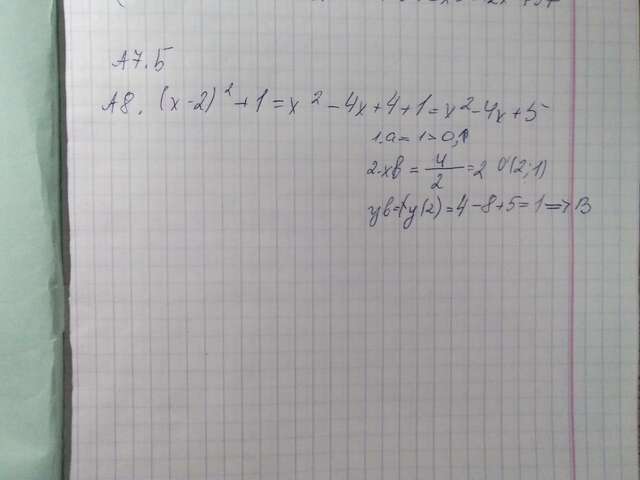 А7.5
А8. (x-2)² + 1 = x² - 4x + 4 + 1 = x² - 4x + 5
1. a = 1 > 0,
2. xв = 4/2 = 2 O'(2;1)
yв = y(2) = 4 - 8 + 5 = 1 => В